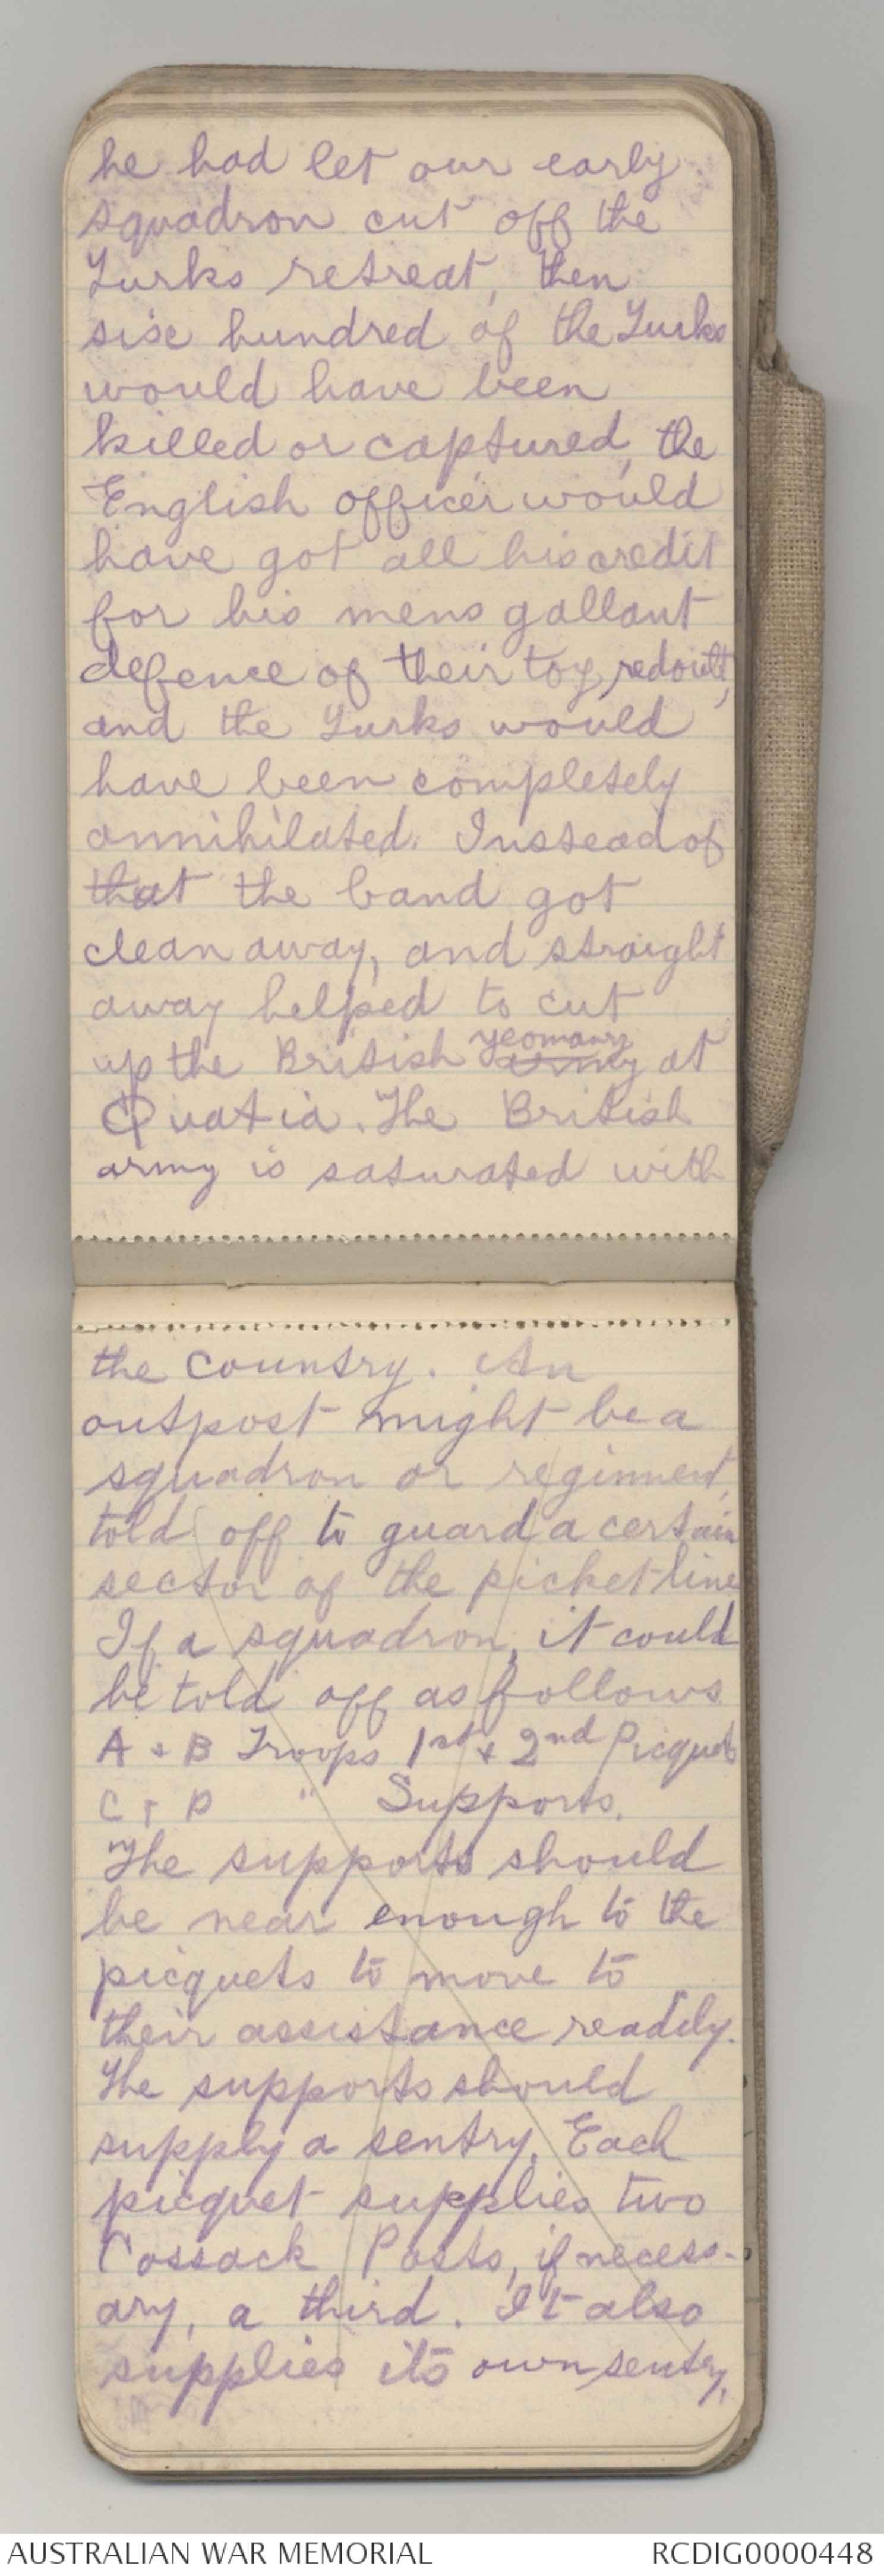 he had let our early
squadron cut off the
Turks retreat, then
six hundred of the Turks
would have been
killed or captured, the
English officer would
have got all his credit
for his mens gallant
defence of their toy redoutt,
and the Turks would
have been completely
annihilated. Instead of
that the band got
clean away, and straight
away helped to cut
up the British yeomanry army at
Quatia. The British
army is saturated with
the country. An
outpost might be a
squadron or reginment,
told off to guard a certain
sector of the picket line
If a squadron, it could
be told off as follows
A + B Troops 1st + 2nd Picquets
C + D " Supports.
The supports should
be near enough to the
picquets to move to
their assistance readily.
The supports should
supply a sentry. Each
picquet supplies two
Cossack Posts, if necess-
ary, a third. It also
supplies its own sentry,
AUSTRALIAN WAR MEMORIAL
RCDIG0000448